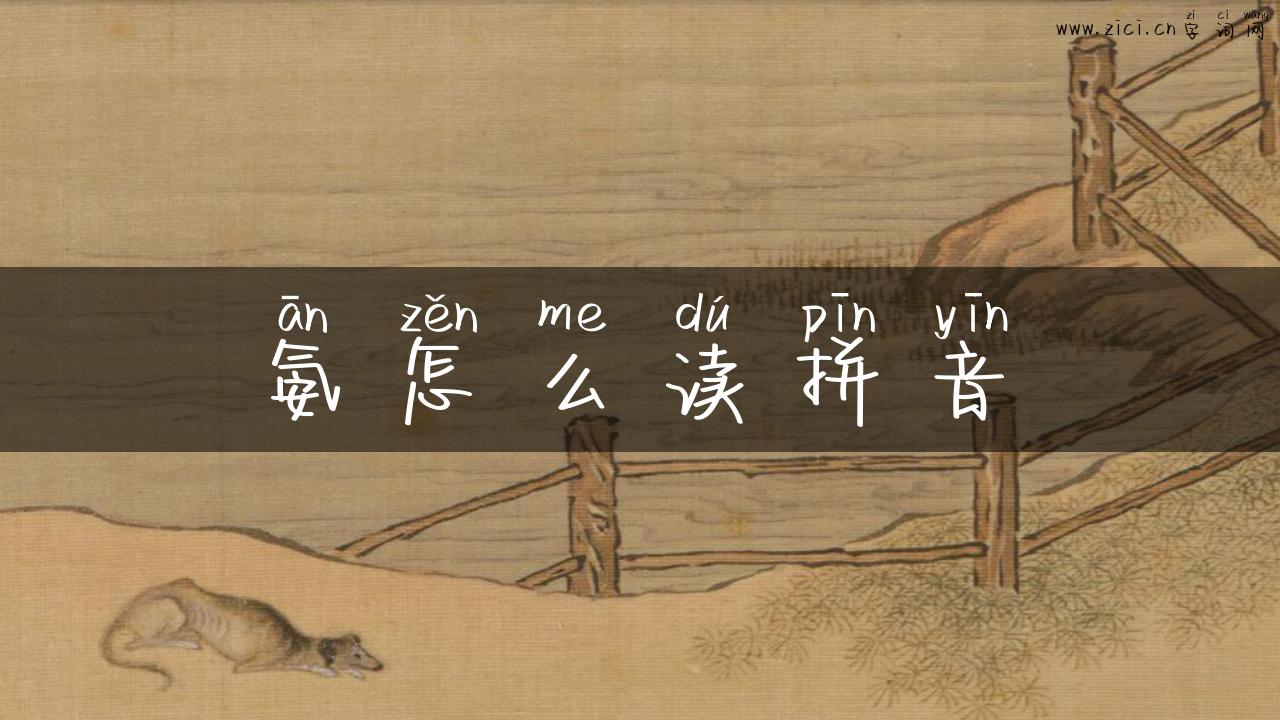 zì cí wǎng
www.zici.cn 字词网
ān zěn me dú pīn yīn
氨怎么读拼音